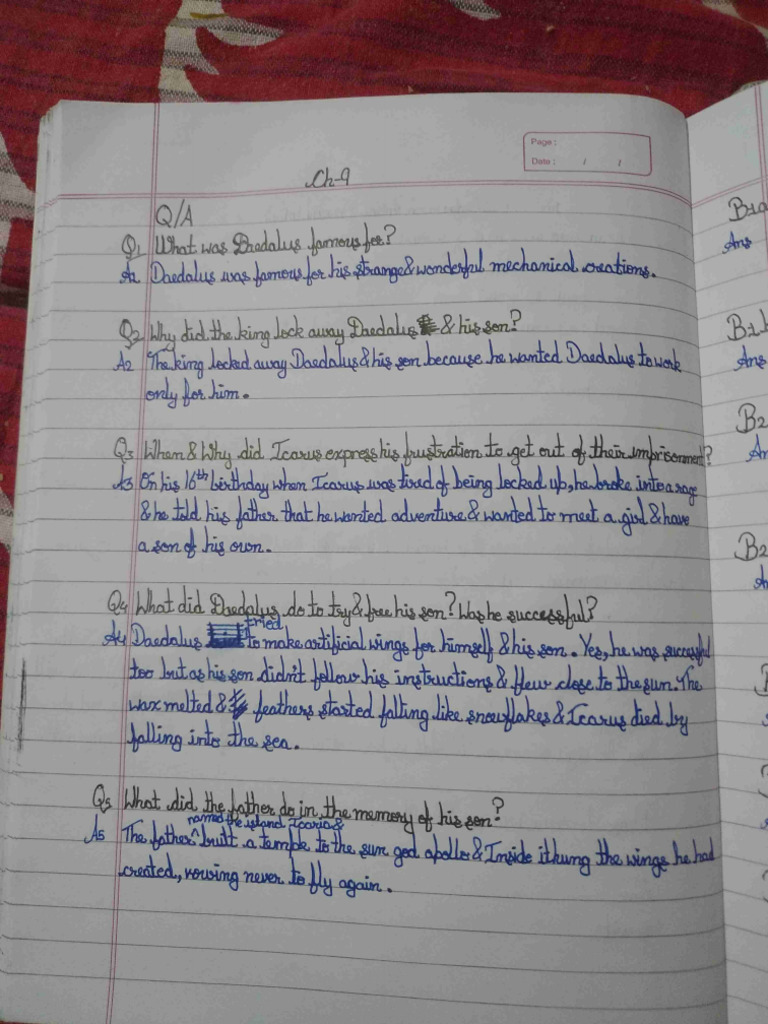 Page :
Date : / /
Ch-9
Q/A
Q1 What was Daedalus famous for?
A1 Daedalus was famous for his strange & wonderful mechanical creations.
Q2 Why did the king lock away Daedalus & his son?
A2 The king locked away Daedalus & his son because he wanted Daedalus to work
only for him.
Q3 When & Why did Icarus express his frustration to get out of their imprisonment?
A3 On his 16th birthday when Icarus was tired of being locked up, he broke into a rage
& he told his father that he wanted adventure & wanted to meet a girl & have
a son of his own.
Q4 What did Daedalus do to try & free his son? Was he successful?
tried
A4 Daedalus to make artificial wings for himself & his son. Yes, he was successful
too but as his son didn't follow his instructions & flew close to the sun. The
wax melted & feathers started falling like snowflakes & Icarus died by
falling into the sea.
Q5 What did the father do in the memory of his son?
named the island Icaria &
A5 The father ^ built a temple to the sun god apollo & Inside it hung the wings he had
created, vowing never to fly again.
B1a
Ans
B1b
Ans
B2
An
B2
A